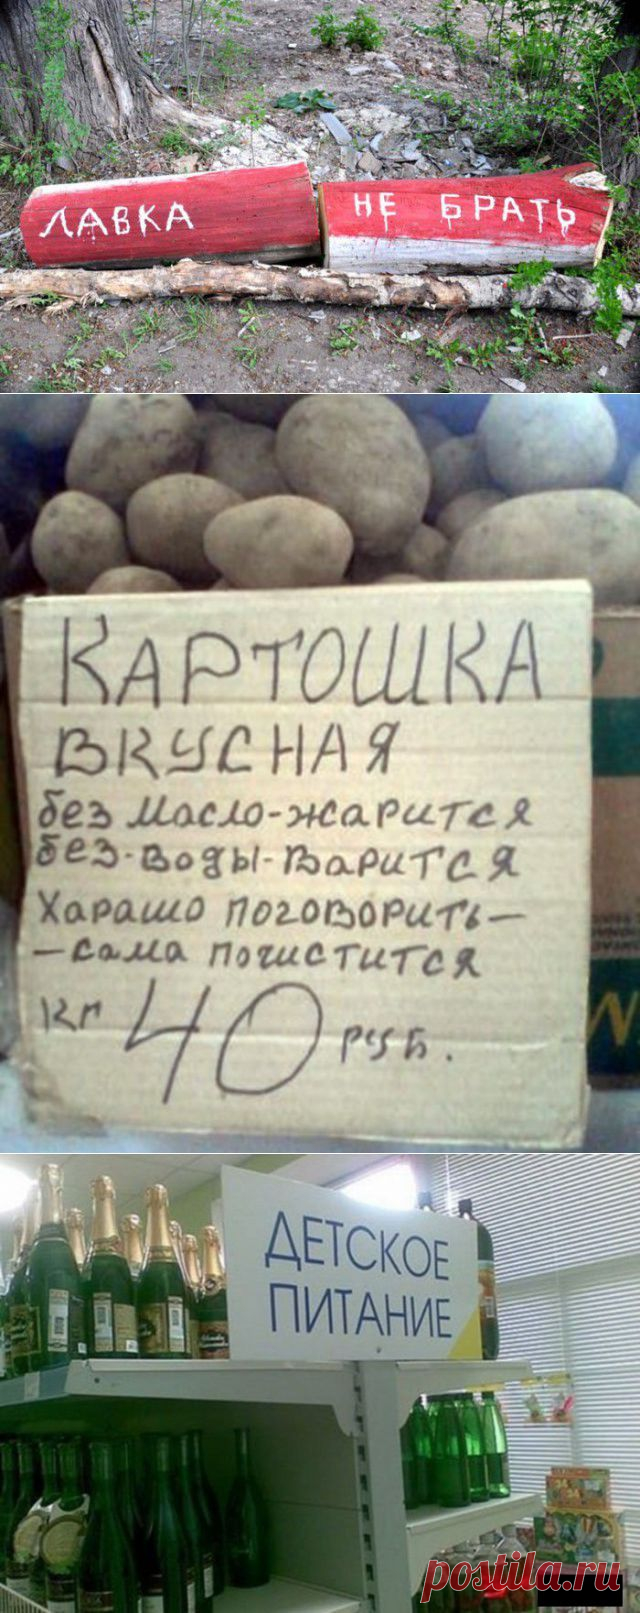 ЛАВКА НЕ БРАТЬ
КАРТОШКА
ВКУСНАЯ
без масло-жарится
без-воды-варится
Харашо поговорить-
-сама почистится
кг 40 руб.
ДЕТСКОЕ
ПИТАНИЕ
postila.ru